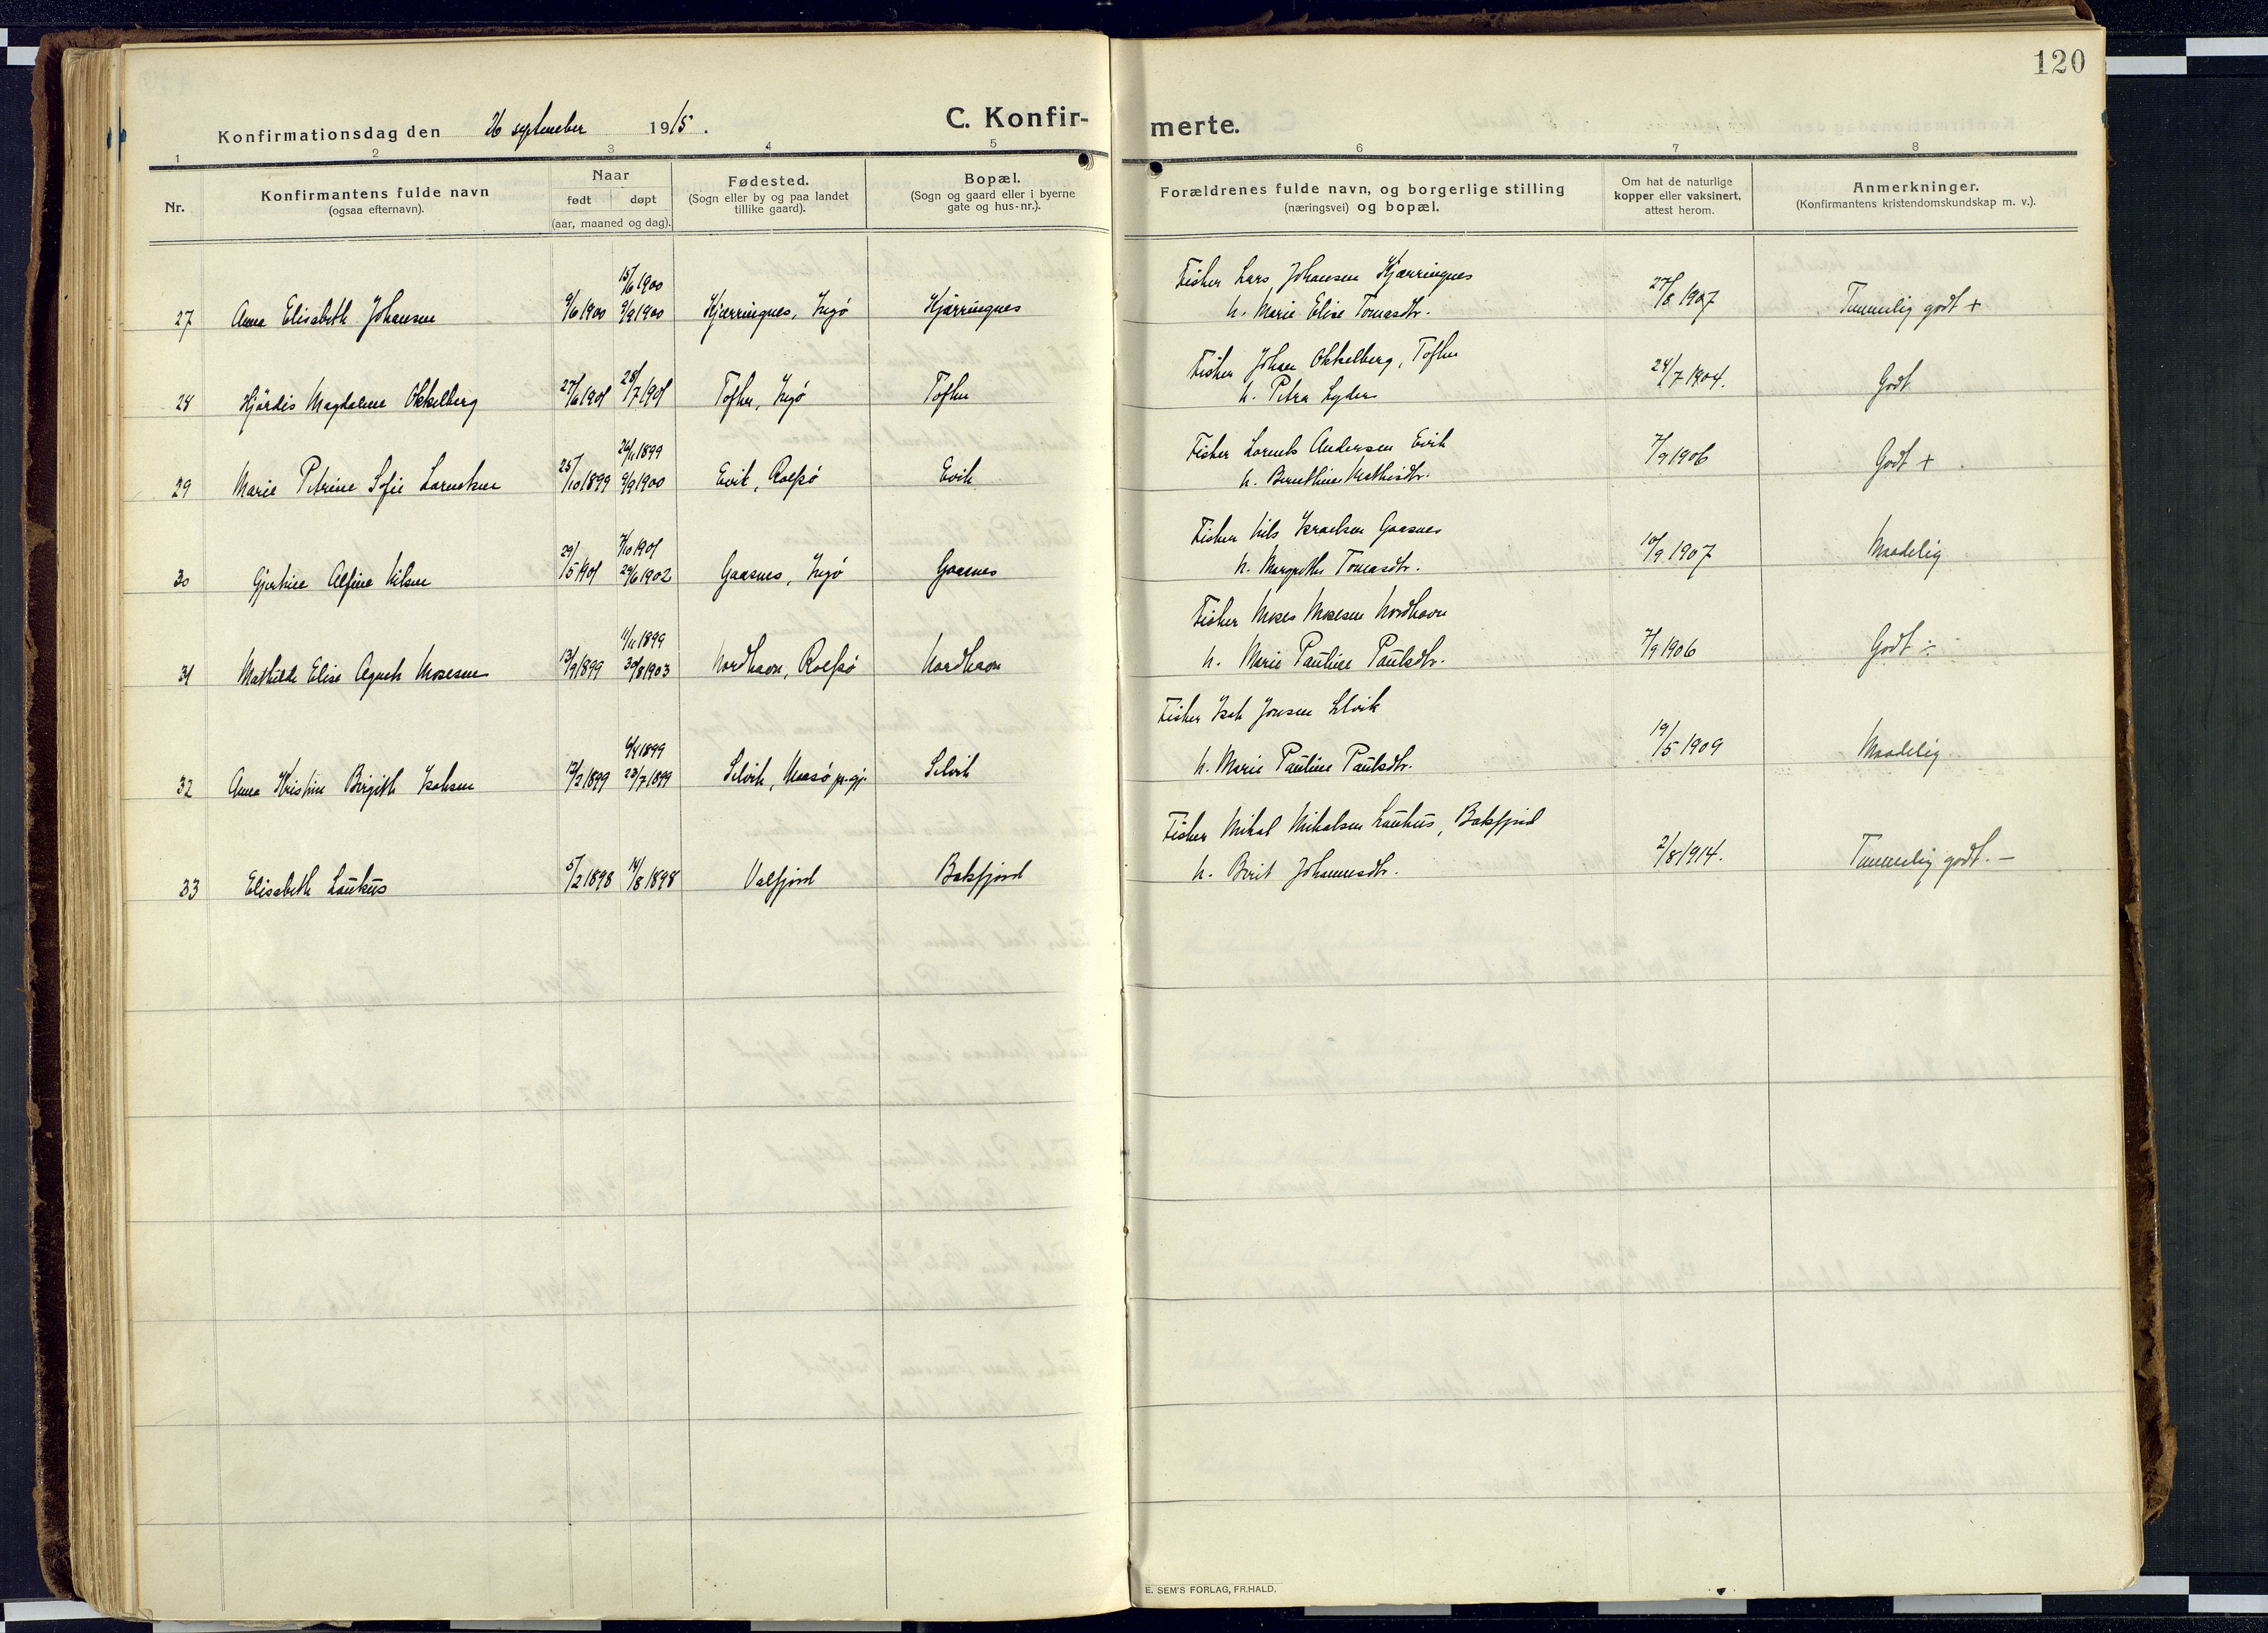 120
Konfirmationsdag den 26 september 1915. C. Konfir-
merte.
1 2 3 4 5 6 7 8
Nr. Konfirmantens fulde navn (ogsaa efternavn). Naar født døpt (aar, maaned og dag). Fødested. (Sogn eller by og paa landet tillike gaard). Bopæl. (Sogn og gaard eller i byerne gate og hus-nr.). Forældrenes fulde navn, og borgerlige stilling (næringsvei) og bopæl. Om hat de naturlige kopper eller vaksinert, attest herom. Anmerkninger. (Konfirmantens kristendomskundskap m. v.).
15/6 1900 Fisker Lars Johansen Kjærringnes
27 Anna Elisabeth Johansen 9/6 1900 9/9 1900 Kjærringnes, Ingø Kjærringnes h. Marie Elise Tomasdtr. 27/8 1907 Temmelig godt +
Fisker Johan Okkelberg, Tofhu
28 Hjørdis Magdalene Okkelberg 27/6 1901 28/7 1901 Tofhu, Ingø Tofhu h. Petra Lyder 24/7 1904. Godt
26/11 1899 Fisker Lorents Andersen Evik
29 Marie Petrine Sofie Lorentsen 25/10 1899 9/9 1900 Evik, Rolfsø Evik h. Bernthine Mathisdtr. 7/9 1906 Godt +
7/10 1901 Fisker Nils Israelsen Gaasnes
30 Gjertine Alfine Nilsen 29/5 1901 29/6 1902 Gaasnes, Ingø Gaasnes h. Margrethe Tomasdtr. 10/9 1907 Maadelig
11/11 1899 Fisker Moses Mosesen Nordhavn
31 Mathilde Elise Agnete Mosesen 13/9 1899 30/8 1903 Nordhavn, Rolfsø Nordhavn h. Marie Pauline Paulsdtr. 7/9 1906 Godt ÷
9/4 1899 Fisker Isak Jonsen Selvik
32 Anna Kristine Birgith Isaksen 12/2 1899 23/7 1899 Selvik, Maasø p.gj. Selvik h. Marie Pauline Paulsdtr. 19/5 1909 Maadelig
Fisker Mikal Mikalsen Laukus, Baksfjord
33 Elisabeth Laukus 5/2 1898 14/8 1898 Valfjord Baksfjord h. Berit Johannesdtr. 2/8 1914. Temmelig godt. —
E. SEM'S FORLAG, FR.HALD.